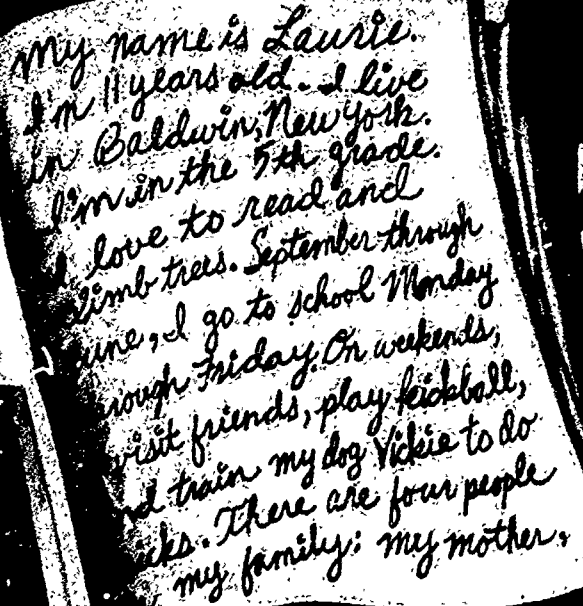 My name is Laurie.
I'm 11 years old. I live
in Baldwin, New York.
I'm in the 5th grade.
I love to read and
climb trees. September through
une, I go to school Monday
rough Friday. On weekends,
visit friends, play kickball,
nd train my dog Vickie to do
cks. There are four people
my family: my mother,